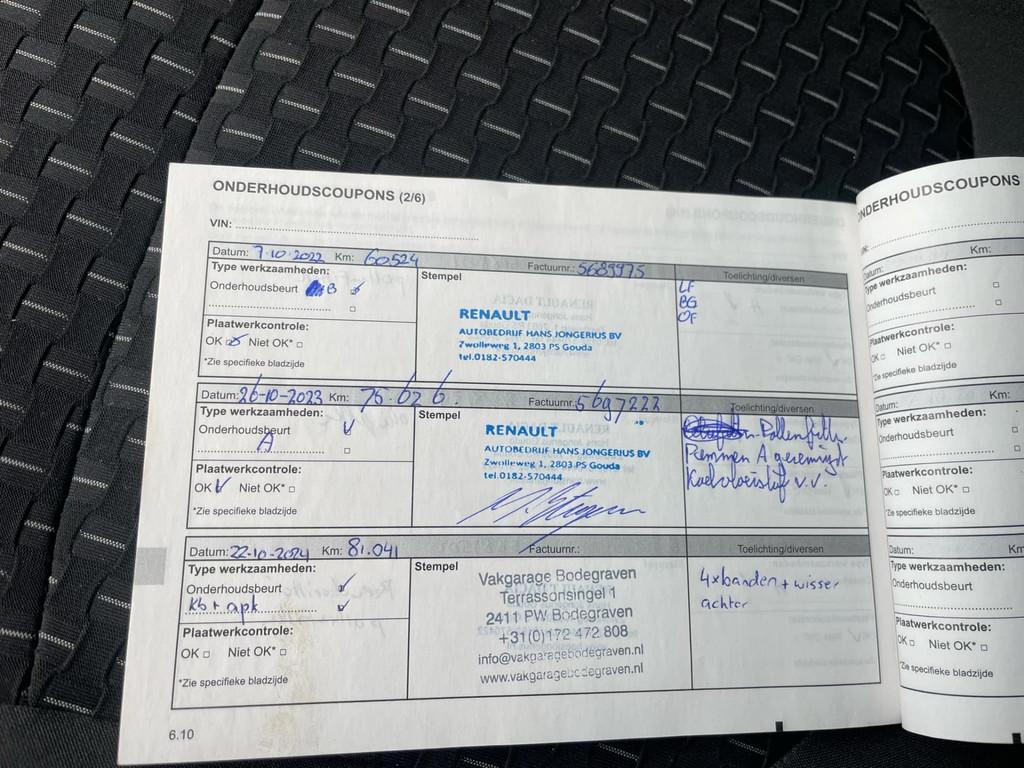 ONDERHOUDSCOUPONS (2/6)
VIN:
Datum: 7-10-2022 Km: 60524 Factuurnr.: 5689975 Toelichting/diversen
Type werkzaamheden:
Onderhoudsbeurt B
Plaatwerkcontrole:
OK Niet OK*
*Zie specifieke bladzijde
Stempel
RENAULT
AUTOBEDRIJF HANS JONGERIUS BV
Zwolleweg 1, 2803 PS Gouda
tel.0182-570444
LF
BG
OF
Datum: 26-10-2023 Km: 75.626. Factuurnr.: 5697222 Toelichting/diversen
Type werkzaamheden:
Onderhoudsbeurt
A
Plaatwerkcontrole:
OK Niet OK*
*Zie specifieke bladzijde
Stempel
RENAULT
AUTOBEDRIJF HANS JONGERIUS BV
Zwolleweg 1, 2803 PS Gouda
tel.0182-570444
Pollenfilt.
Remmen A gereinigd
Koelvloeistof v.v.
Datum: 22-10-2024 Km: 81.041 Factuurnr.: Toelichting/diversen
Type werkzaamheden:
Onderhoudsbeurt
Kb + apk
Plaatwerkcontrole:
OK Niet OK*
*Zie specifieke bladzijde
Stempel
Vakgarage Bodegraven
Terrassonsingel 1
2411 PW Bodegraven
+31(0)172 472 808
info@vakgaragebodegraven.nl
www.vakgaragebodegraven.nl
4x banden + wisser
achter
6.10
ONDERHOUDSCOUPONS
Datum: Km:
Type werkzaamheden:
Onderhoudsbeurt
Plaatwerkcontrole:
OK Niet OK*
*Zie specifieke bladzijde
Datum:
Type werkzaamheden:
Onderhoudsbeurt
Plaatwerkcontrole:
OK Niet OK*
*Zie specifieke bladzijde
Datum: Km
Type werkzaamheden:
Onderhoudsbeurt
Plaatwerkcontrole:
OK Niet OK*
*Zie specifieke bladzijde